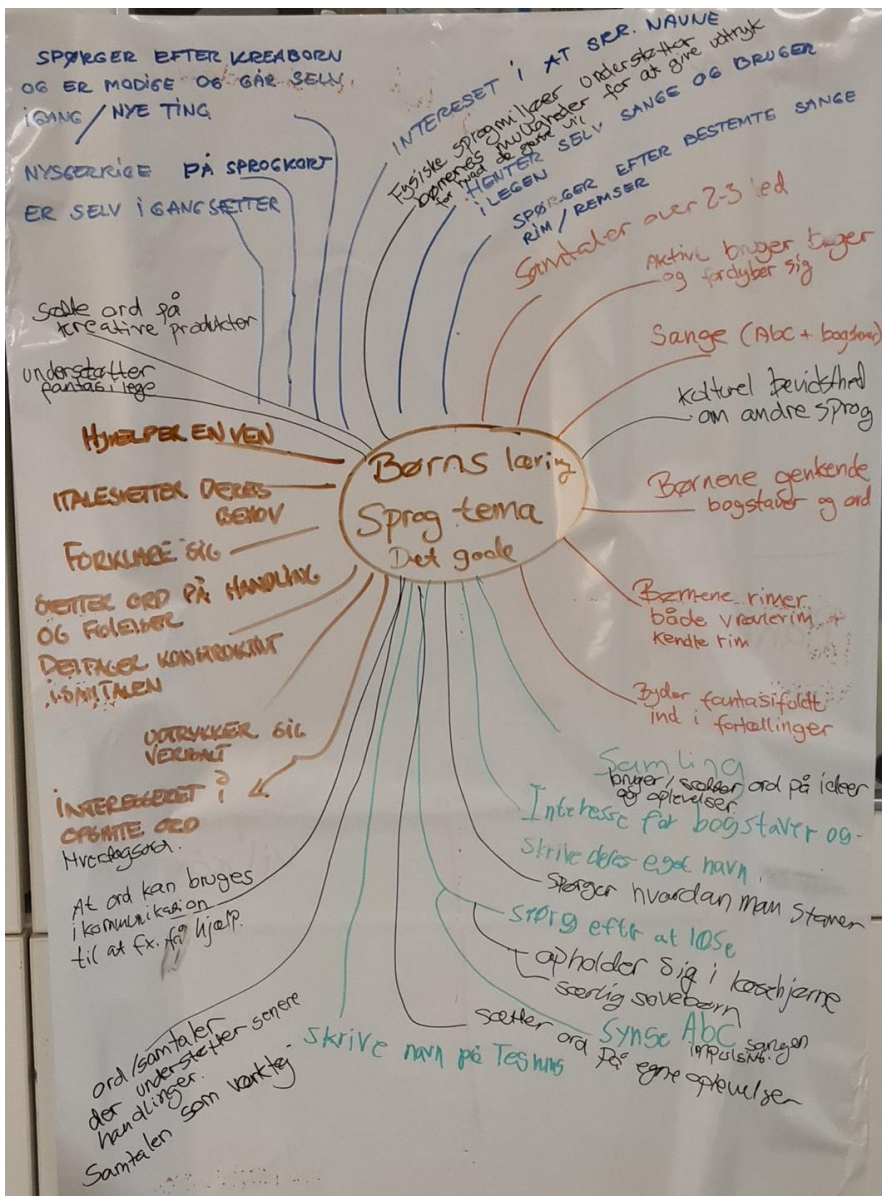 SPØRGER EFTER KREABORN
OG ER MODIGE OG GÅR SELV
IGANG / NYE TING
NYSGERRIGE PÅ SPROGKORT
ER SELV IGANGSÆTTER
Sætte ord på
kreative produkter
understøtter
fantasi lege
INTERESET I AT SKR. NAVNE
Fysiske sprogmiljøer understøtter
børnenes muligheder for at give udtryk
for hvad de gerne vil
HENTER SELV SANGE OG BRUGER
I LEGEN
SPØRGER EFTER BESTEMTE SANGE
RIM / REMSER
Samtaler over 2-3 led
Aktivt bruger bøger
og fordyber sig
Sange (Abc + bogstaver)
kulturel bevidsthed
om andre sprog
Børnene genkende
bogstaver og ord
Børnene rimer
både vrøvlerim +
kendte rim
Byder fantasifuldt
ind i fortællinger
Børns læring
Sprog tema
Det gode
HJÆLPER EN VEN
ITALESÆTTER DERES
BEHOV
FORKLARE SIG
SÆTTER ORD PÅ HANDLING
OG FØLELSER
DELTAGER KONSTRUKTIVT
I SAMTALEN
UDTRYKKER SIG
VERBALT
INTERESSERET I
ORD
Hverdagsord.
At ord kan bruges
i kommunikation
til at fx. få hjælp.
ord/samtaler
der understøtter senere
handlinger.
Samtalen som værktøj
skrive navn på Tegning
Samling
bruger/sætter ord på ideer
og oplevelser
Interesse for bogstaver og
skrive deres eget navn.
spørger hvordan man staver
spørg eftr at løse
opholder sig i
særlig sovebørn
Synge Abc sangen
sætter ord på egne oplevelser